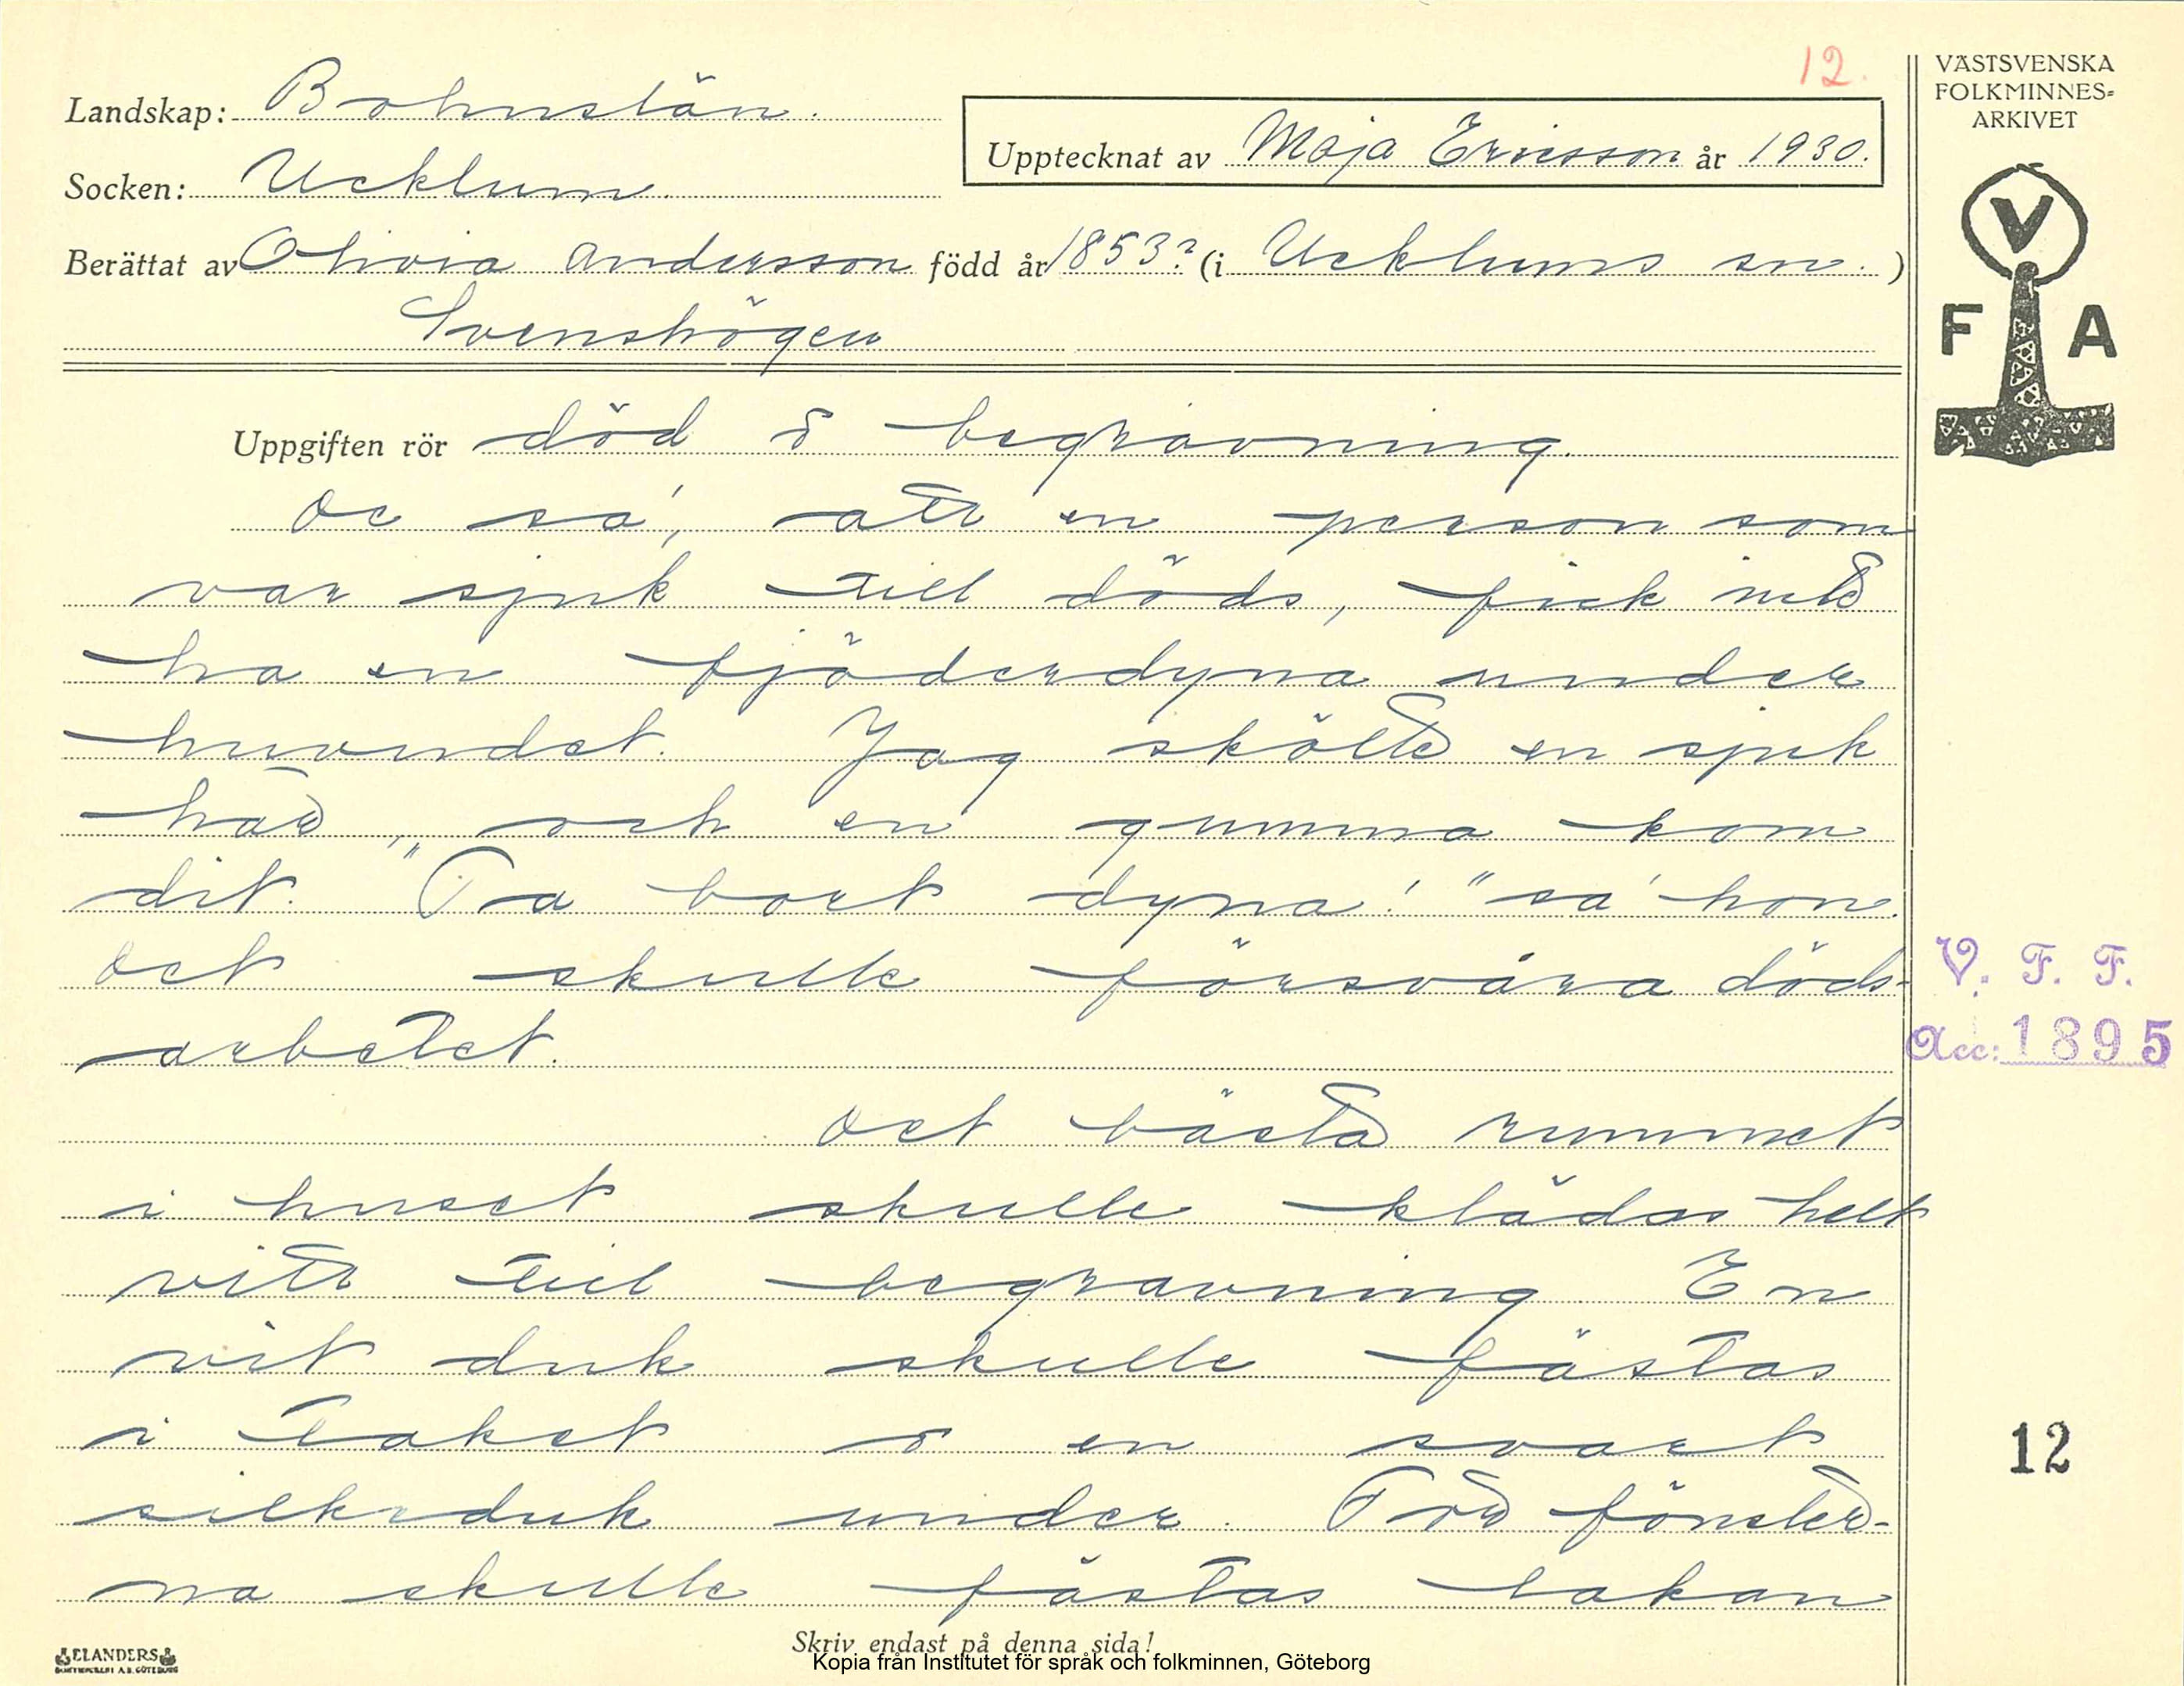 12.
VÄSTSVENSKA
FOLKMINNES-
ARKIVET
Landskap: Bohuslän.
Upptecknat av Maja Ericsson år 1930.
Socken: Ucklum.
Berättat av Olivia Andersson född år 1853? (i Ucklums sn.)
Svenshögen
V
F A
Uppgiften rör död o begravning.
De sa', att en person som
var sjuk till döds, fick inte
ha en fjäderdyna under
huvudet. Jag skötte en sjuk
här, och en gumma kom
dit. "Ta bort dyna!" sa' hon.
Det skulle försvåra döds-
arbetet.
Det bästa rummet
i huset skulle klädas helt
vitt till begravning En
vit duk skulle fästas
i taket o en svart
silkeduk under. För fönster-
na skulle fästas lakan
V. F. F.
Acc: 1895
12
ELANDERS
Skriv endast på denna sida!
Kopia från Institutet för språk och folkminnen, Göteborg